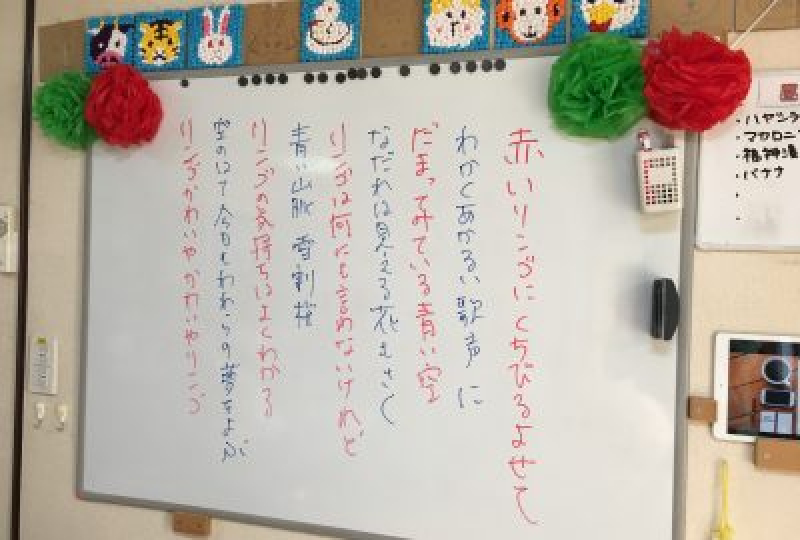 赤いリンゴにくちびるよせて
わかくあかるい歌声に
だまってみている青い空
なだれは見える花もさく
リンゴは何にも言わないけれど
青い山脈 雪割桜
リンゴの気持ちはよくわかる
空のはて今日もわれらの夢をよぶ
リンゴかわいやかわいやリンゴ
・ハヤシラ
・マカロニ
・福神漬
・バナナ